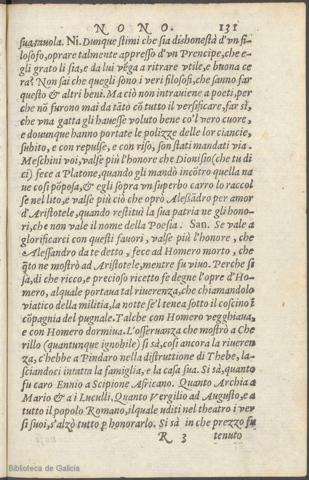 NONO. 131
sua tavola. Ni. Dunque stimi che sia dishonestà d'vn fi-
losofo, oprare talmente appresso d'vn Prencipe, che e-
gli grato li sia, e da lui vẽga a ritrare vtile, e buona ce
ra? Non sai che quegli sono i veri filosofi, che sanno far
questo & altri beni. Ma ciò non intraviene a poeti, per
che nō furono mai da tāto cō tutto il versificare, far sì,
che vna gatta gli hauesse voluto bene co'l vero cuore,
e dounque hanno portate le polizze delle lor ciancie,
subito, e con repulse, e con riso, son stati mandati via.
Meschini voi, valse più l'honore che Dionisio (che tu di
ci) fece a Platone, quando gli mandò incōtro quella na
ue così pōposa, & egli sopra vn superbo carro lo raccol
se nel lito, e valse più ciò che oprò Alesādro per amor
d'Aristotele, quando restituì la sua patria ne gli hono-
ri, che non vale il nome della Poesia. San. Se vale a
glorificarci con questi fauori, valse più l'honore, che
Alessandro da te detto, fece ad Homero morto, che
q̃to ne mostrò ad Aristotele, mentre fu viuo. Perche si
sà, di che ricco, e precioso ricetto fè degne l'opre d'Ho-
mero, al quale portaua tal riuerenza, che chiamandolo
viatico della militia, la notte se'l tenea sotto il coscino ĩ
cōpagnia del pugnale. Talche con Homero vegghiaua,
e con Homero dormiua. L'osseruanza che mostrò a Che
rillo (quantunque ignobile) si sà, così ancora la riueren
za, c'hebbe a Pindaro nella distruttione di Thebe, la-
sciandoci intatta la famiglia, e la casa sua. Si sà, quanto
fu caro Ennio a Scipione Africano. Quanto Archia a
Mario & a i Luculli. Quanto Vergilio ad Augusto, e a
tutto il popolo Romano, ilquale uditi nel theatro i ver
si suoi, s'alzò tutto ꝑ honorarlo. Si sà in che prezzo fu
R 3 tenuto
Biblioteca de Galicia